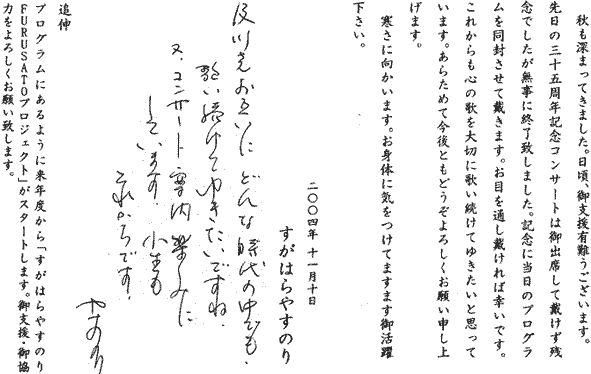 秋も深まってきました。日頃、御支援有難うございます。
先日の三十五周年記念コンサートは御出席して戴けず残
念でしたが無事に終了致しました。記念に当日のプログラ
ムを同封させて戴きます。お目を通し戴ければ幸いです。
これからも心の歌を大切に歌い続けてゆきたいと思って
います。あらためて今後ともどうぞよろしくお願い申し上
げます。
寒さに向かいます。お身体に気をつけてますます御活躍
下さい。
二〇〇四年 十一月十日
すがはらやすのり
及川さんお互いに どんな時代の中でも、
歌い続けてゆきたいですね。
又、コンサート 案内 楽しみに
しています。小生も
これからです。
やすのり
追伸
プログラムにあるように来年度から「すがはらやすのり
FURUSATOプロジェクト」がスタートします。御支援・御協
力をよろしくお願い致します。